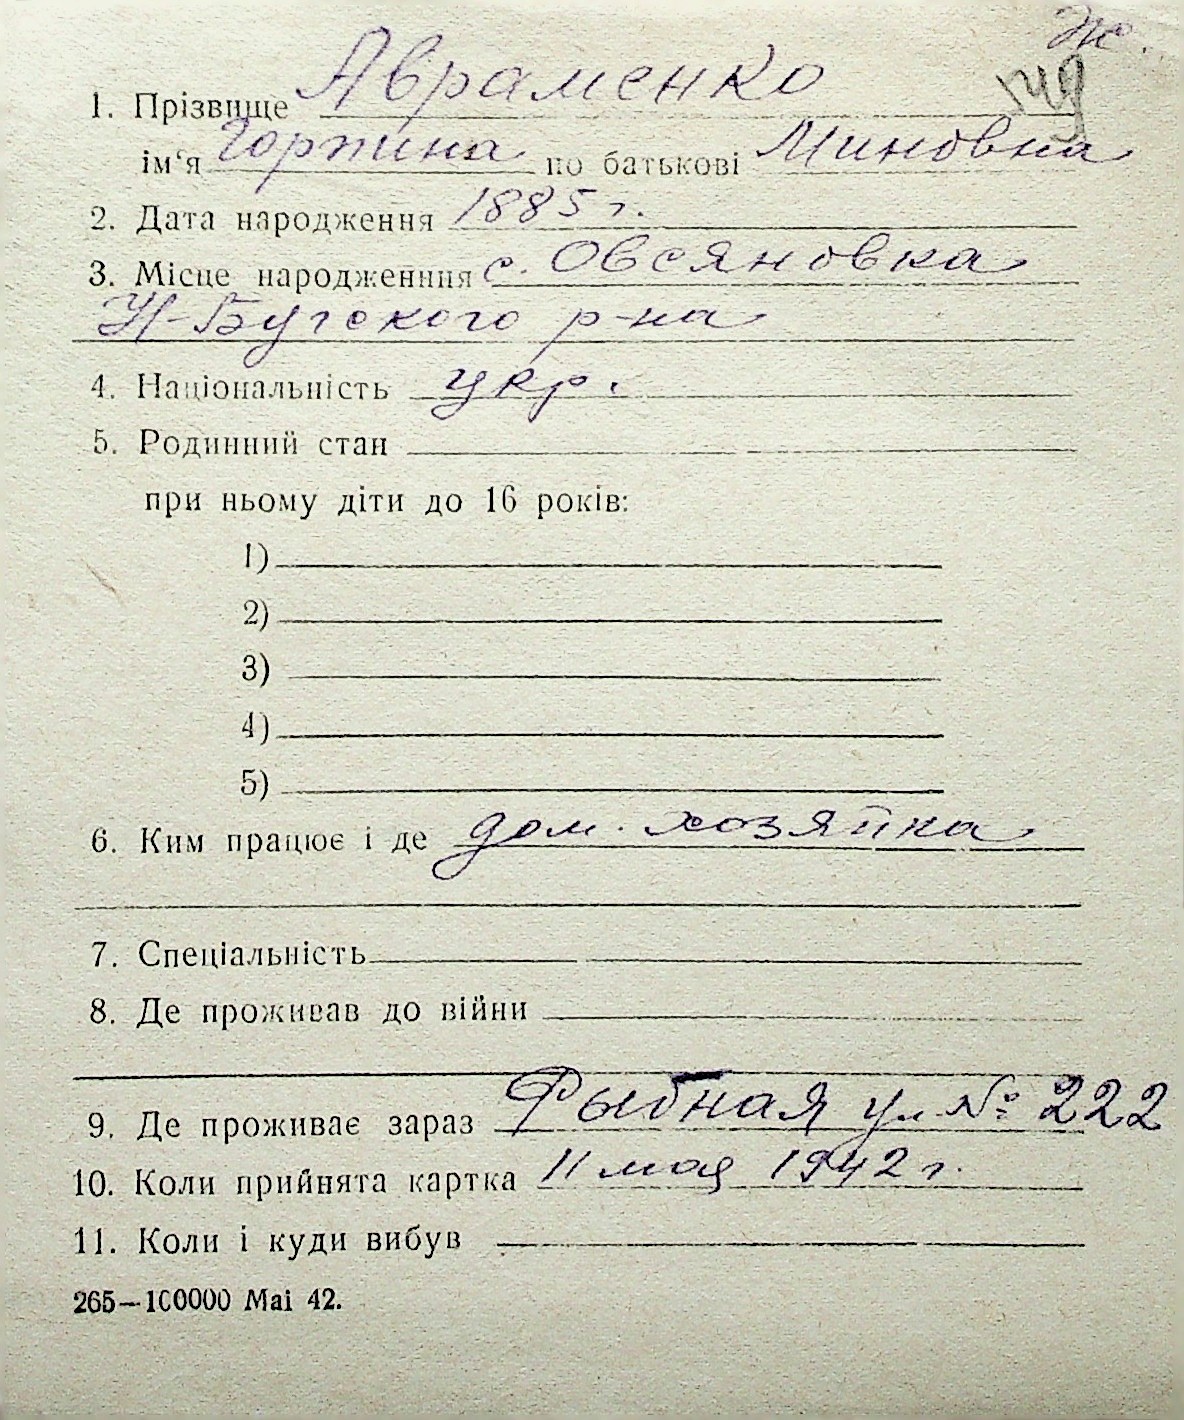 Ж.
1. Прізвище Авраменко
ім‘я Горпина по батькові Миновна
2. Дата народження 1885 г.
3. Місце народженння с. Овсяновка
Н-Бугского р-на
4. Національність укр.
5. Родинний стан
при ньому діти до 16 років:
1)
2)
3)
4)
5)
6. Ким працює і де дом. хозяйка
7. Спеціальність
8. Де проживав до війни
9. Де проживає зараз Рыбная ул. № 222
10. Коли прийнята картка 11 мая 1942 г.
11. Коли і куди вибув
265—100000 Маі 42.